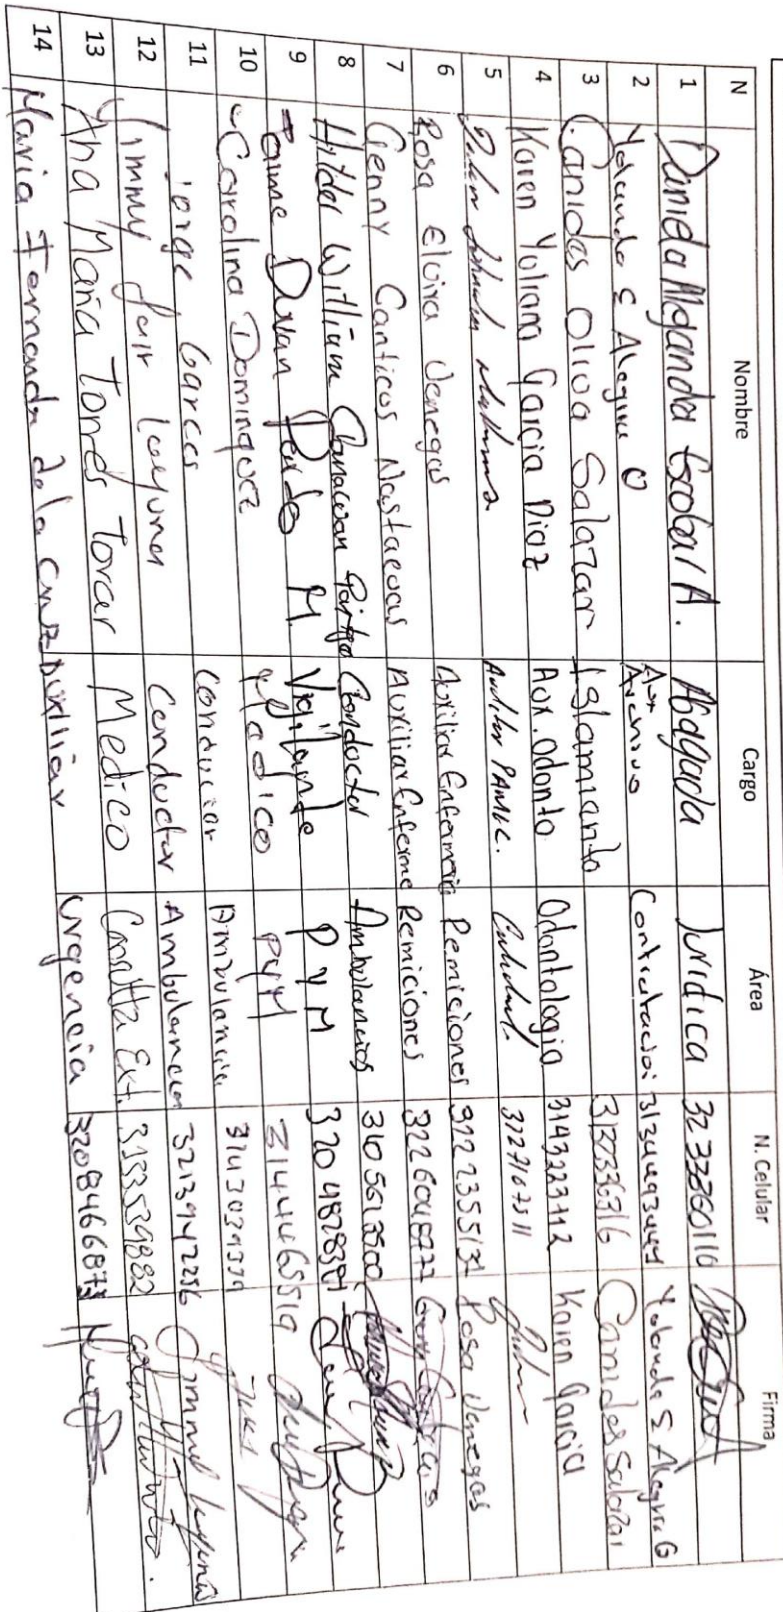 N Nombre Cargo Área N. Celular Firma
1 Danida Alejanda Escobar A. Abogada Juridica 3233260116
2 Yolanda S Alegria O Aux Archivo Contratacion 3134493444 Yolanda S Alegria G
3 Canidas Oliva Salazar Islamianto 313336316 Canides Salazar
4 Karen Yuliana Garcia Diaz Aux. Odonto Odontologia 3143223412 Karen Garcia
5 Auditor PAMEC. 3127167511
6 Rosa Elvira Venegas Auxiliar Enfermeria Remiciones 3122355131 Rosa Venegas
7 Genny Canticus Nastacuas Auxiliar Enferme Remiciones 3226048772
8 Hilder William Conductor Ambulancias 3105613500
9 Jaime Duvan Pardo M. Vigilante P Y M 3204828301
10 Carolina Dominguez Medico PYM 3144465519
11 Jorge Garces Conductor Ambulancia 3143039379
12 Yimmy Jair Laguna Conductor Ambulancia 3213942256
13 Ana Maria Torres Tovar Medico Consulta Ext. 3133539882
14 Maria Fernanda de la Cruz Auxiliar Urgencia 3208466873